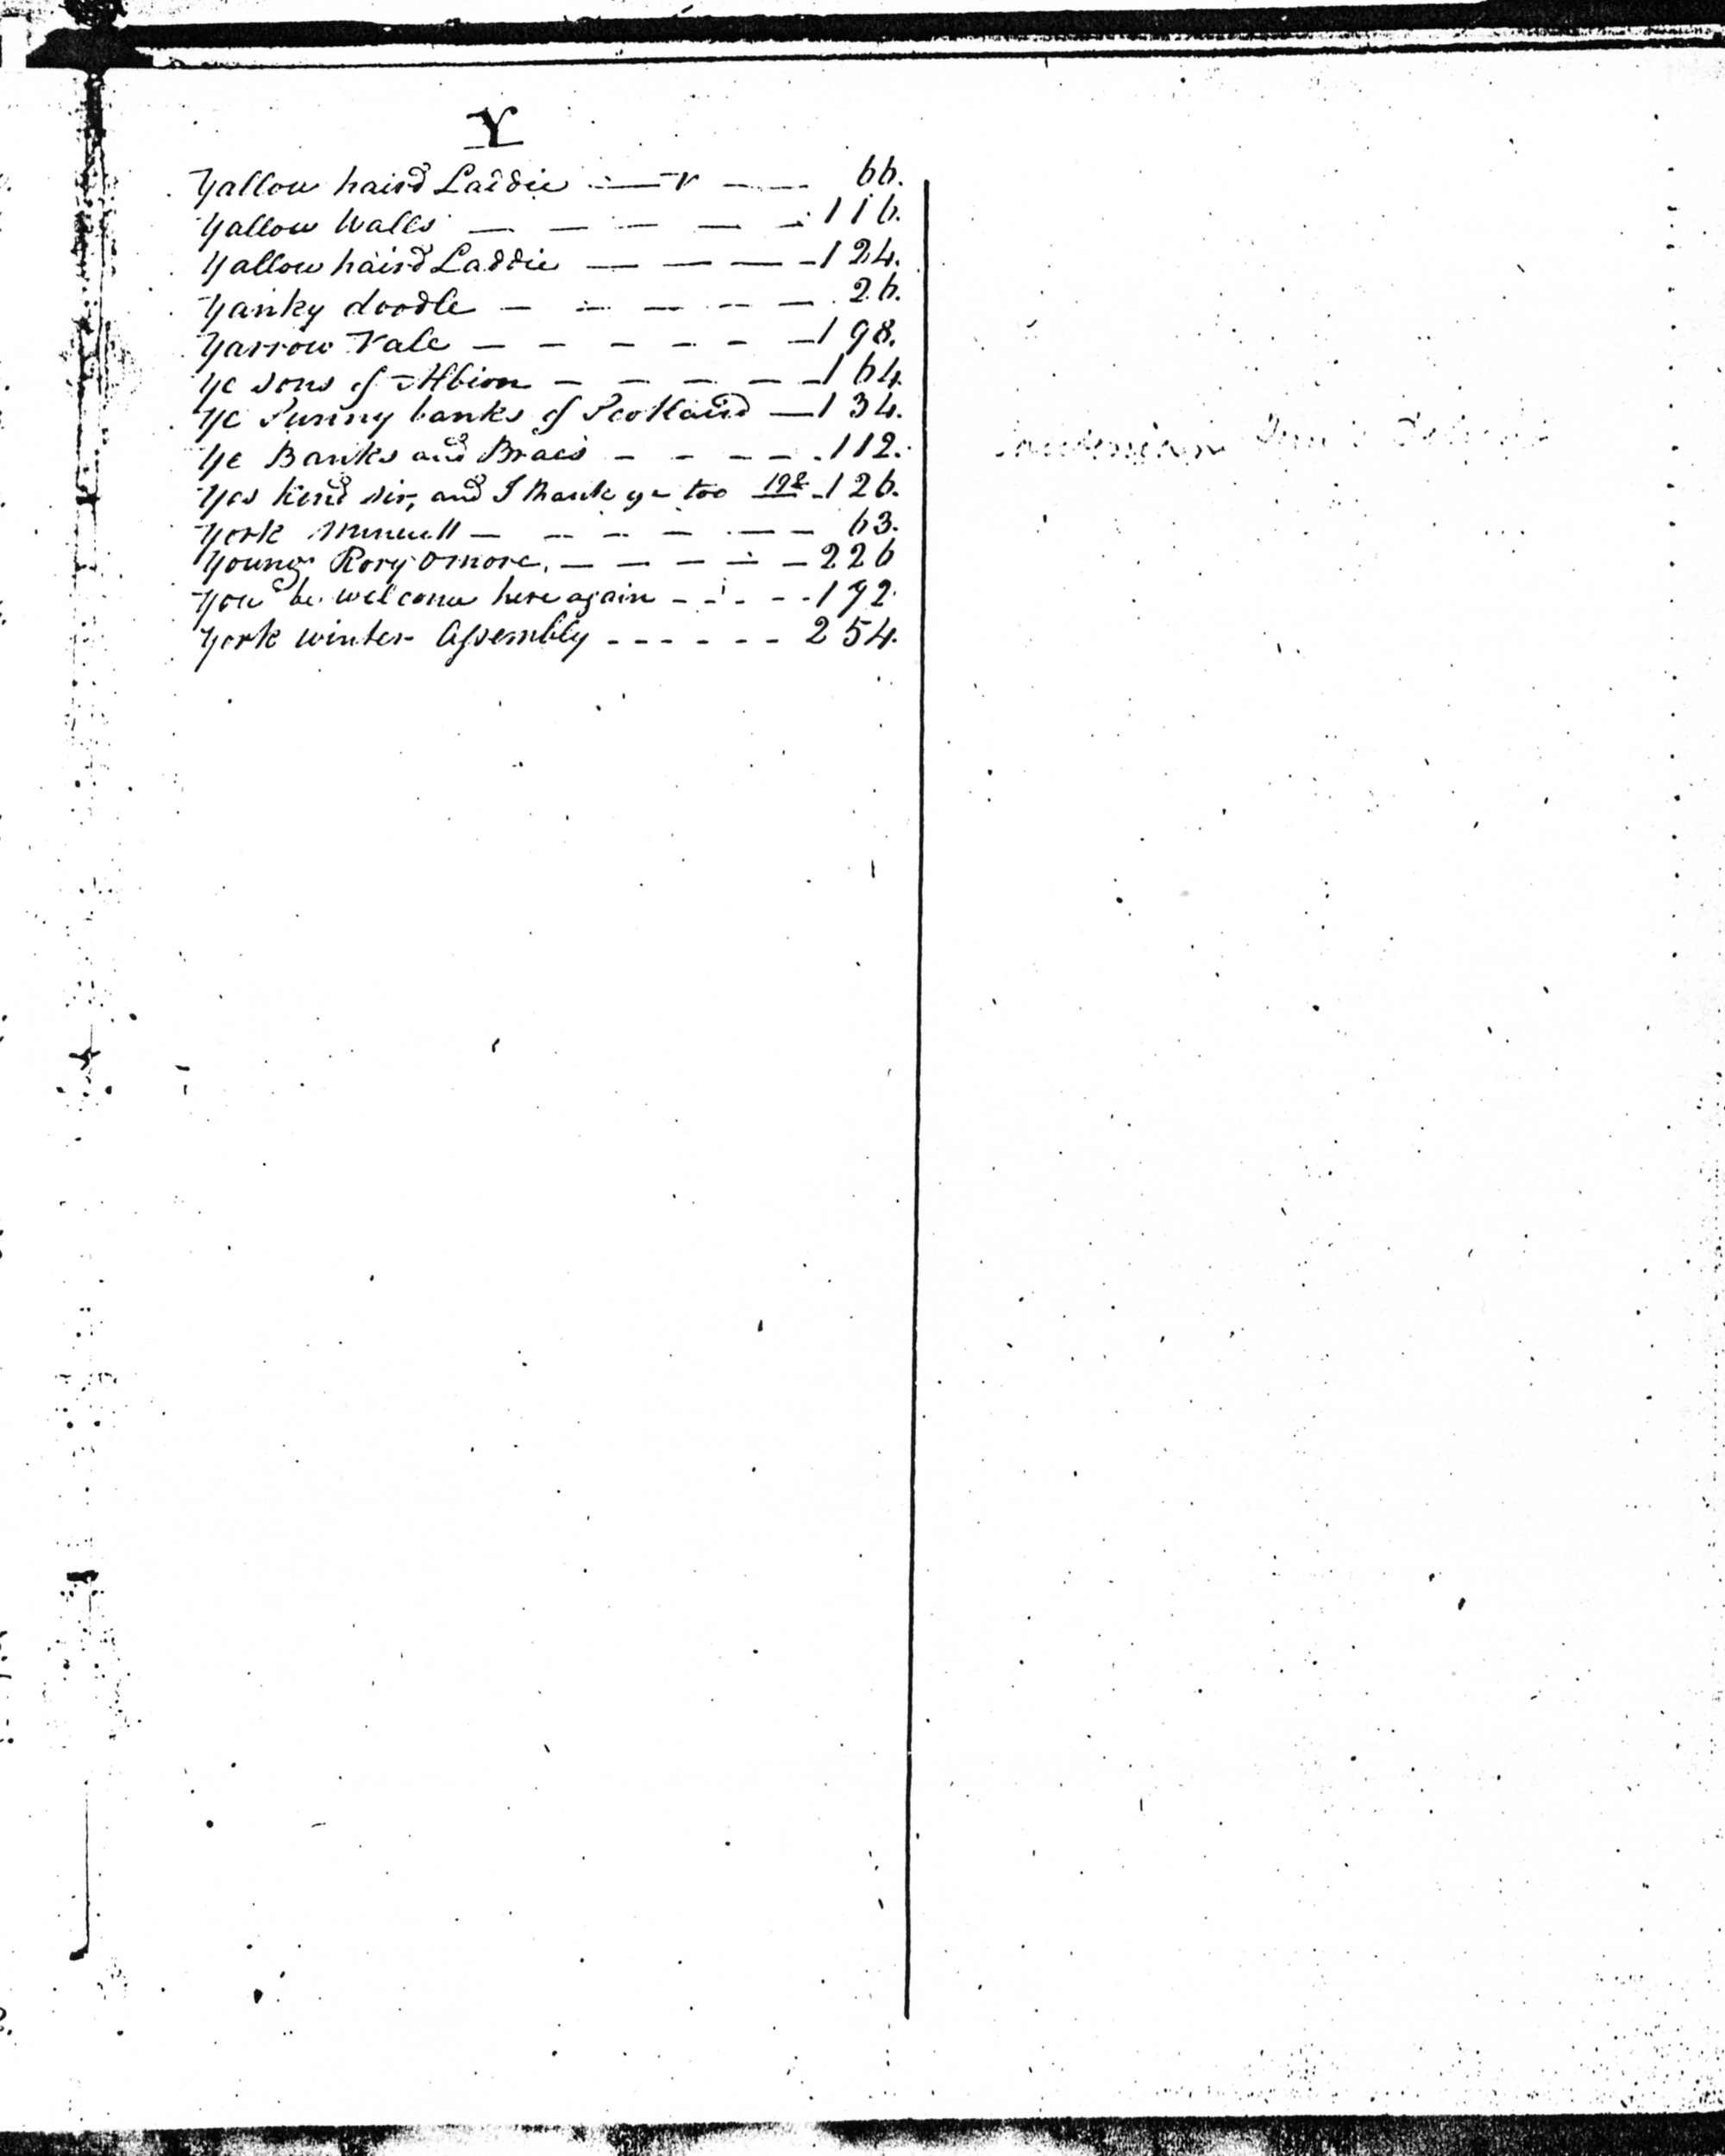 Y
Yallow haird Laddie — v — 66.
Yallow Walls — — — — — 116.
Yallow haird Laddie — — — — 124.
Yanky doodle — — — — — 26.
Yarrow Vale — — — — — — 198.
Ye sons of Albion — — — — — 164.
Ye Sunny banks of Scotland — 134.
Ye Banks and Braes — — — — 112.
Yes kend sir, and I thank ye too 198 126.
York Minuett — — — — — — 63.
Young Rory Omore. — — — — — 226
You be welcome here again - - - - 192.
York winter Assembly - - - - - - 254.